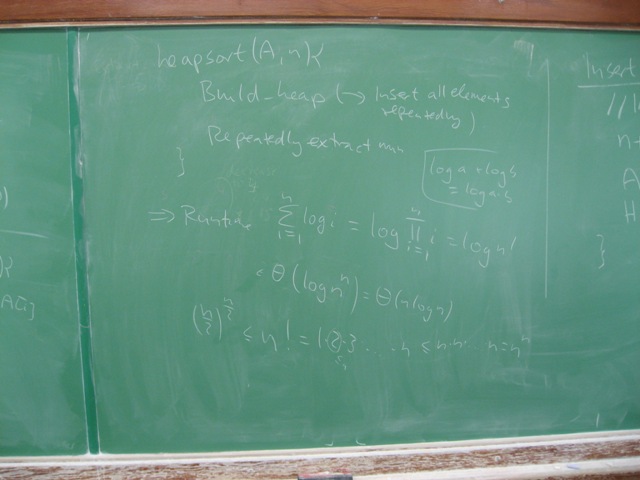 heapsort(A, n){
Build_heap (→ Insert all elements
repeatedly)
Repeatedly extract min
}
log a + log b
= log a·b
⇒ Runtime ∑_{i=1}^{n} log i = log ∏_{i=1}^{n} i = log n!
∈ Θ(log n^n) = Θ(n log n)
(n/2)^{n/2} ≤ n! = 1·2·3 ... n ≤ n·n· ... n = n^n
Insert
//
n
A
H
}
)
){
A[i]